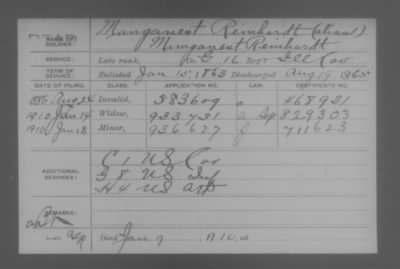 NAME OF SOLDIER: Manganest Reinhardt (alias)
Minganest Reinhardt
SERVICE: Late rank, Co. G 16 Regt Ill Cav
TERM OF SERVICE: Enlisted Jan 15, 1863 Discharged Aug 19, 1865
DATE OF FILING. CLASS. APPLICATION NO. LAW. CERTIFICATE NO.
Aug 24 Invalid, 583609 468931
1910 Jan 14 Widow, 933731 829303
1910 Jan 28 Minor, 936627 711623
ADDITIONAL SERVICES: C 1 US Cav
G 8 US Inf
H 4 US Art
REMARKS:
Died Jan 9 1910, at